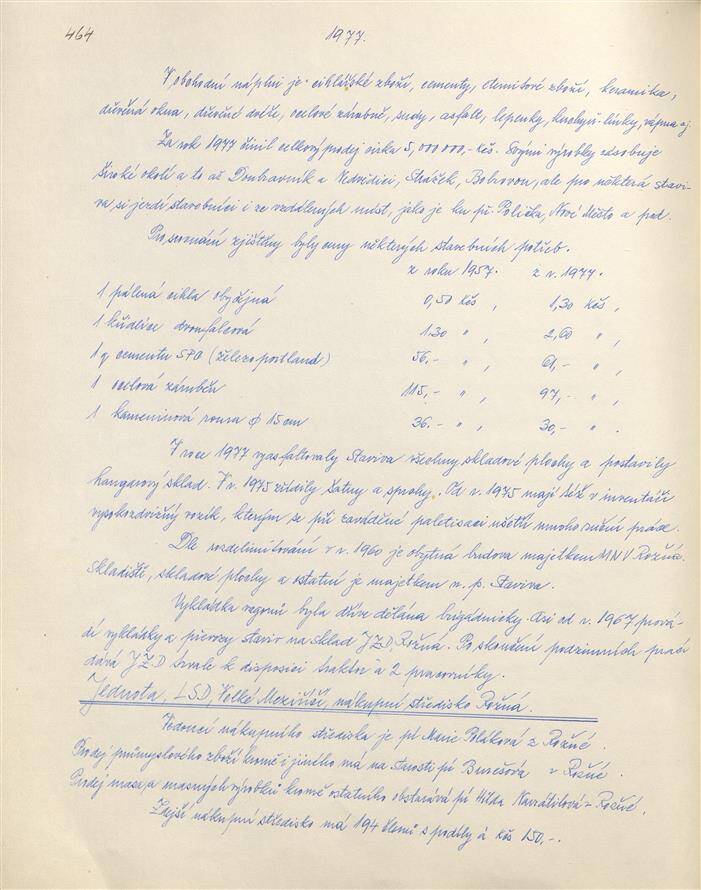 464
1977.
V obchodní náplni je cihlářské zboží, cementy, osinkové zboží, keramika,
dřevěná okna, dřevěné dveře, ocelové zárubně, sudy, asfalt, lepenky, kuchyň. linky, vápna aj.
Za rok 1977 činil celkový prodej cirka 5,000 000,- Kčs. Svými výrobky zásobuje
široké okolí a to až Doubravník a Nedvědici, Strážek, Bobrovou, ale pro některá stavi-
va si jezdí stavebníci i ze vzdálených míst, jako je ku př. Polička, Nové Město a pod.
Pro srovnání zjištěny byly ceny některých stavebních potřeb.
z roku 1957. z r. 1977.
1 pálená cihla obyčejná 0,50 Kčs, 1,30 Kčs,
1 křidlice dvoufalcová 1.30 " , 2,60 " ,
1 q cementu SPC (železoportland) 56,- " , 61,- " ,
1 ocelová zárubeň 115,- " , 97,- " ,
1 kameninová roura φ 15 cm 36.- " , 30,- " .
V roce 1977 vyasfaltovaly Staviva všechny skladové plochy a postavily
hangarový sklad. V r. 1975 zřídily šatny a sprchy. Od r. 1975 mají též v inventáři
vysokozdvižný vozík, kterým se při zaváděné paletisaci ušetří mnoho ruční práce.
Dle rozdelimitování v r. 1960 je obytná budova majetkem MNV Rožná.
Skladiště, skladové plochy a ostatní je majetkem n. p. Staviva.
Vykládka vagonů byla dříve dělána brigádnicky. Asi od r. 1967 prová-
dí vykládky a převozy staviv na sklad JZD Rožná. Po skončení podzimních prací
dává JZD trvale k disposici traktor a 2 pracovníky.
Jednota, LSD, Velké Meziříčí, nákupní středisko Rožná.
Vedoucí nákupního střediska je pí Marie Poláková z Rožné.
Prodej průmyslového zboží kromě i jiného má na starosti pí Burešová z Rožné.
Prodej masa a masných výrobků kromě ostatního obstarává pí Hilda Navrátilová z Rožné.
Zdejší nákupní středisko má 194 členů s podíly á Kčs 150,-.